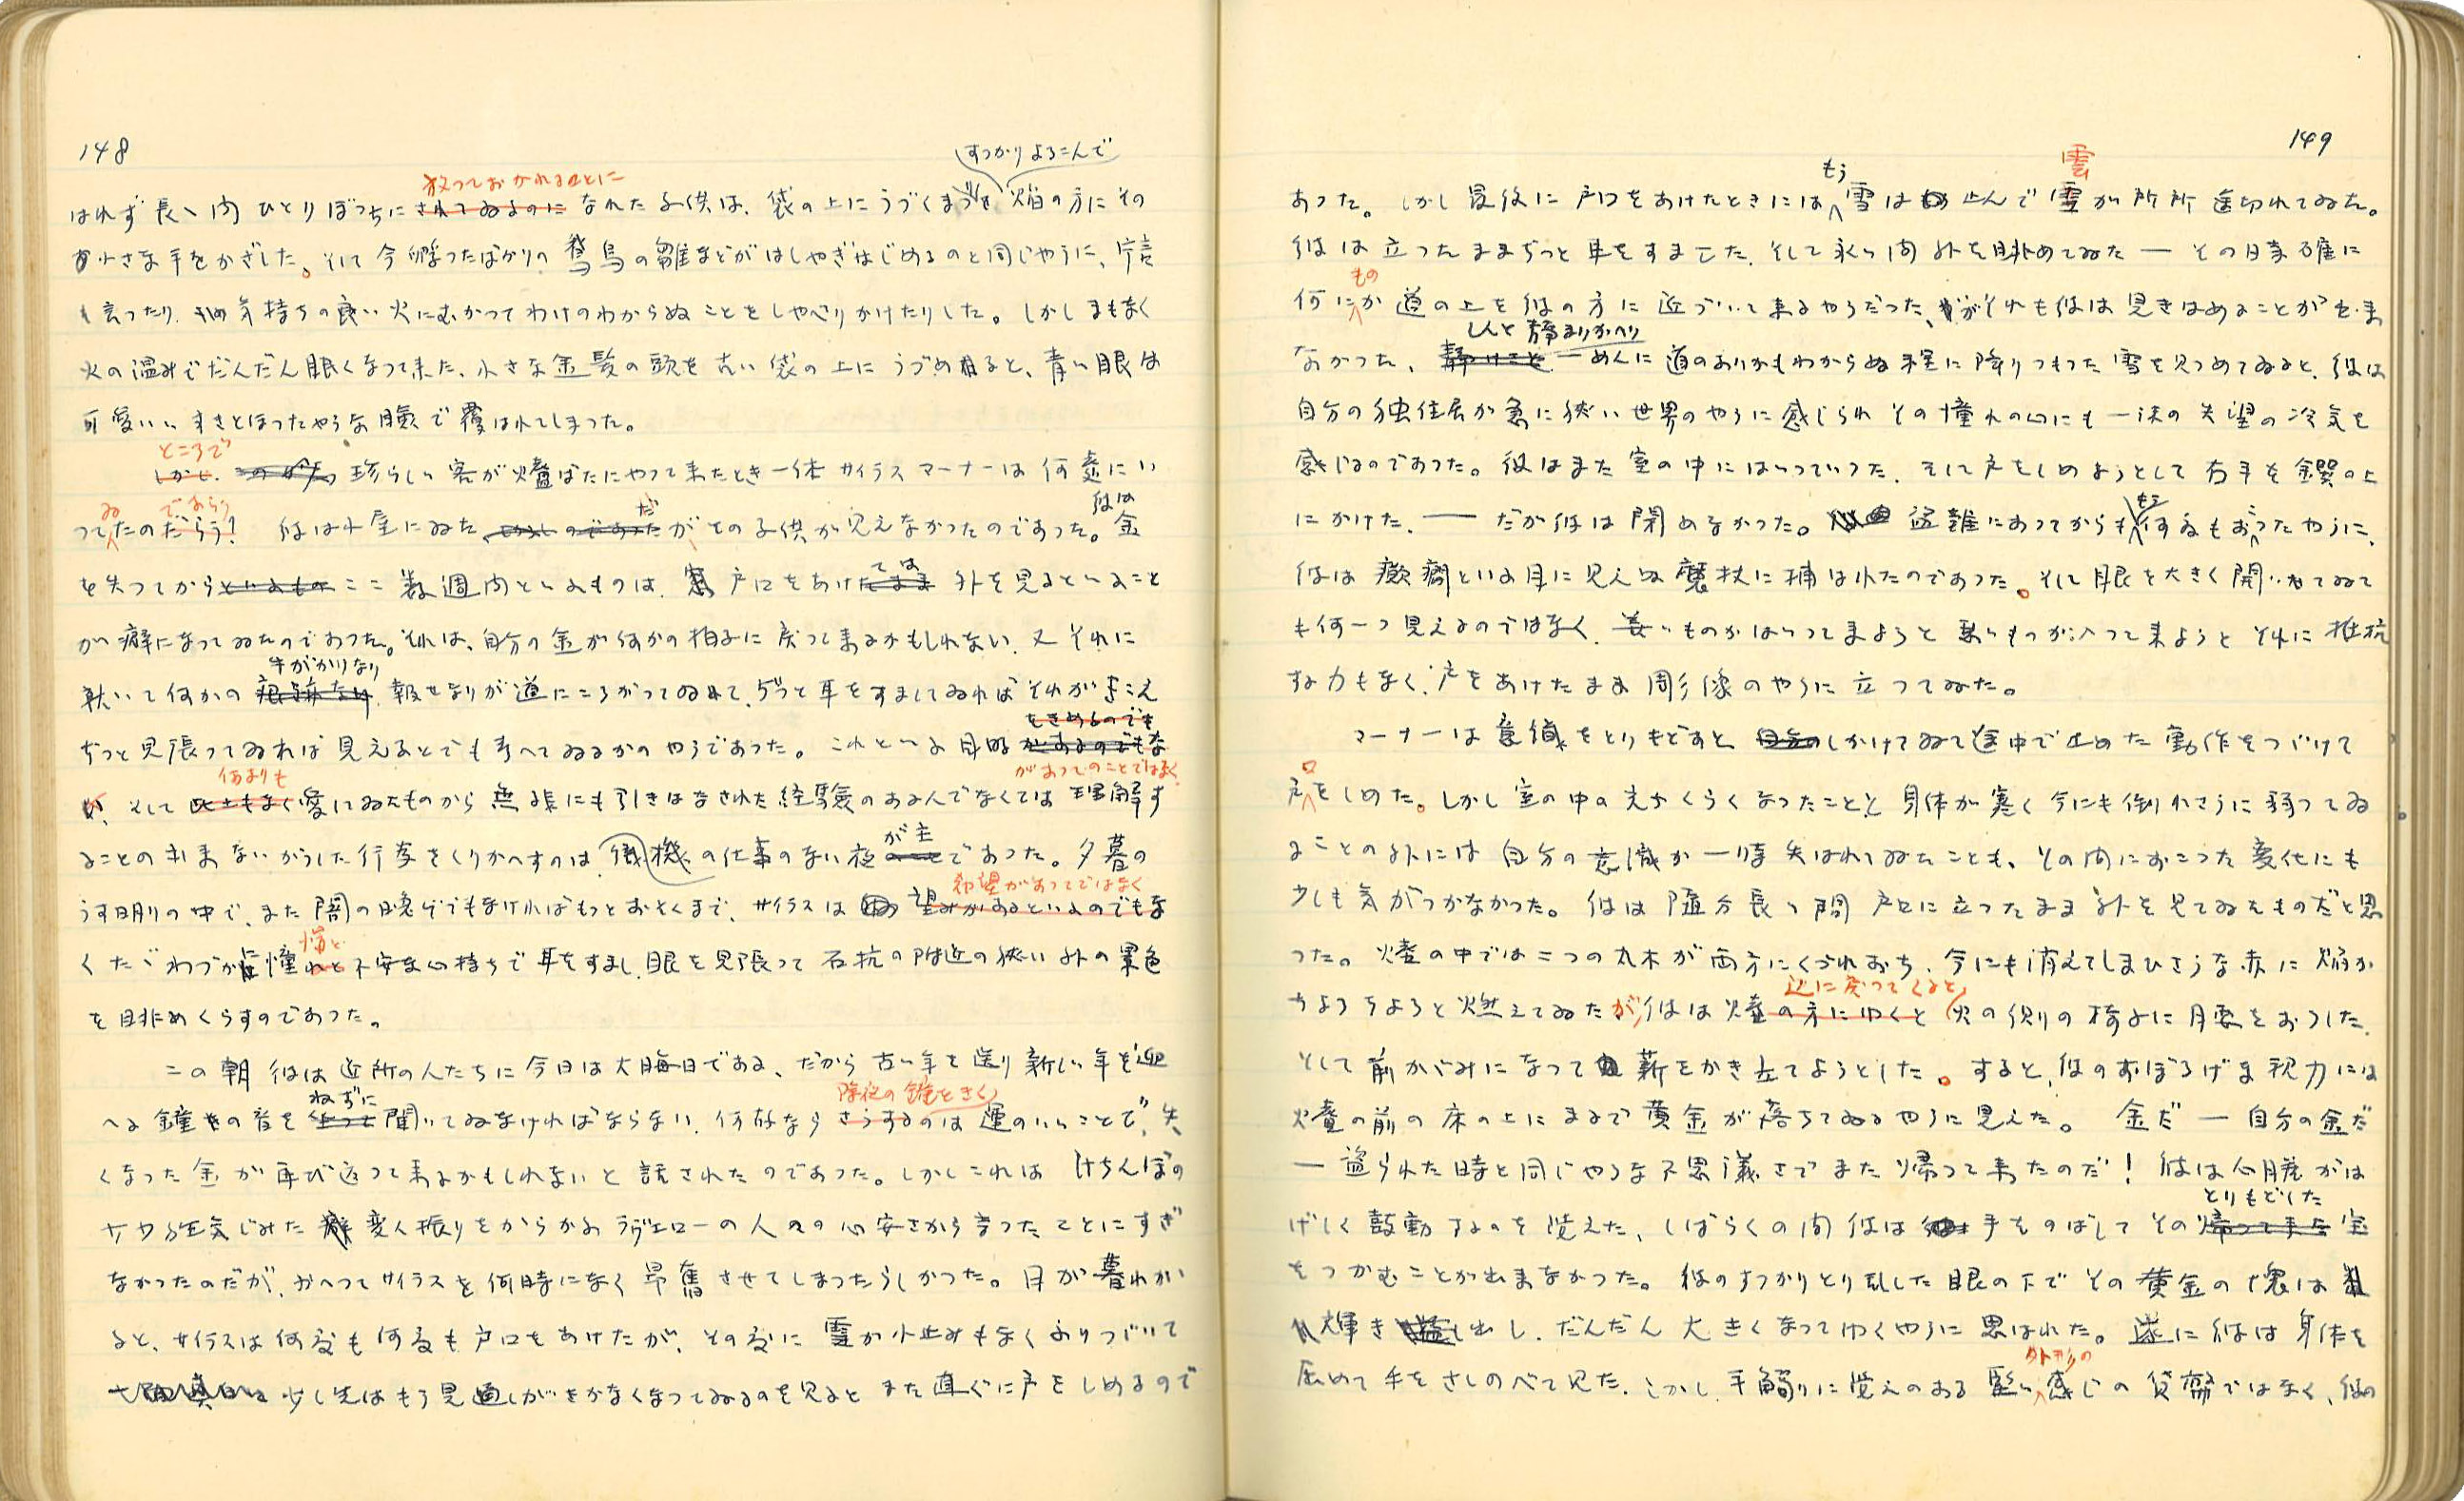 148
すつかりよろこんで
放つておかれることに
はれず長い間ひとりぼつちにされてゐるのになれた子供は、袋の上にうづくまつて焔の方にその
小さな手をかざした。そして今孵つたばかりの鵞鳥の雛などがはしやぎはじめるのと同じやうに、片言
を言つたり、気持ちの良い火にむかつてわけのわからぬことをしやべりかけたりした。しかしまもなく
火の温みでだんだん眠くなつて来た、小さな金髪の頭を古い袋の上にうづめると、青い眼は
可愛いいすきとほつたやうな瞼で覆はれてしまつた。
ところで
しかし、珍らしい客が爐ばたにやつて来たとき一体サイラスマーナーは何處にい
ゐ であらう だ 彼は
つてたのだらう? 彼は小屋にゐた のであつたがその子供が見えなかつたのであつた。金
では
を失つてからといふものここ数週間といふものは、戸口をあけたまま外を見るといふこと
が癖になつてゐたのであつた。それは、自分の金が何かの拍子に戻つて来るかもしれない、又それに
手がかりなり
就いて何かの痕跡なり報せなりが道にころがつてゐて、ぢつと耳をすましてゐればそれがきこえ
ぢつと見張つてゐれば見えるとでも考へてゐるかのやうであつた。これといふ目的があるのでもな
があつてのことではなく
何よりも
そして愛してゐたものから無残にも引きはなされた経験のある人でなくては理解す
が主
ることの出来ないかうした行為をくりかへすのは、機の仕事のない夜であつた。夕暮の
希望があつてではなく
うす明りの中で、また闇の晩ででもなければもつとおそくまで、サイラスは望みがあるといふのでもな
憬と
くたゞわづかに憧れと不安な心持ちで耳をすまし、眼を見張つて石抗の附近の狭い外の景色
を眺めくらすのであつた。
この朝彼は近所の人たちに今日は大晦日である、だから古い年を送り新しい年を迎
ねずに 除夜の鐘をきく
へる鐘の音を聞いてゐなければならない、何故ならさうするのは運のいいことで、失
くなつた金が再び返つて来るかもしれないと話されたのであつた。しかしこれはけちんぼの
やや狂気じみた変人振りをからかふラヴェローの人々の心安さから言つたことにすぎ
なかつたのだが、かへつてサイラスを何時になく昂奮させてしまつたらしかつた。日が暮れか
ると、サイラスは何度も何度も戸口をあけたが、その度に雪が小止みもなくふりつづいて
少し先はもう見通しがきかなくなつてゐるのを見るとまた直ぐに戸をしめるので
149
もう 雲
あつた。しかし最後に戸口をあけたときには雪は止んで雲が所所途切れてゐた。
彼は立つたままぢつと耳をすました、そして永い間外を眺めてゐた―その時確に
もの
何にか道の上を彼の方に近づいて来るやうだつた、がそれも彼は見きはめることが出来
しんと静まりかへり
なかつた、一めんに道のありかもわからぬ程に降りつもつた雪を見つめてゐると、彼は
自分の独住居が急に狭い世界のやうに感じられその憧れの心にも一抹の失望の冷気を
感じるのであつた。彼はまた室の中にはいつていつた、そして戸をしめようとして右手を鐉の上
もう
にかけた、―だが彼は閉めなかつた。盗難にあつてからも何度もあつたやうに、
彼は癲癇といふ目に見えぬ魔杖に捕はれたのであつた。そして眼を大きく開いてゐて
も何一つ見えるのではなく、善いものがはいつてきようと悪いものが入つて来ようとそれに抵抗
する力もなく、戸をあけたまま彫像のやうに立つてゐた。
マーナーは意識をとりもどすと しかけてゐて途中で止めた動作をつづけて
口
戸をしめた。しかし室の中の光がくらくなつたことと身体が寒く今にも倒れさうに弱つてゐ
ることの外には自分の意識が一時失はれてゐたことも、その間におこつた変化にも
少しも気がつかなかつた。彼は随分長い間戸口に立つたまま外を見てゐたものだと思
つた。爐の中では二つの丸木が両方にくづれおち、今にも消えてしまひさうな赤い焔が
辺に戻つてくると
ちよろちよろと燃えてゐたが彼は爐の方にゆくと火の側の椅子に腰をおろした。
そして前かがみになつて薪をかき立てようとした。すると、彼のおぼろげな視力には
爐の前の床の上にまるで黄金が落ちてゐるやうに見えた。金だ―自分の金だ
―盗られた時と同じやうな不思議さでまた帰つて来たのだ!彼は心臓がは
とりもどした
げしく鼓動するのを覚えた、しばらくの間彼は手をのばしてその帰つて来た宝
をつかむことが出来なかつた。彼のすつかりとり乱した眼の下でその黄金の塊は
輝き出し、だんだん大きくなつてゆくやうに思はれた。遂に彼は身体を
外形の
屈めて手をさしのべて見た、しかし、手觸りに覚えのある堅い感じの貨幣ではなく、彼の